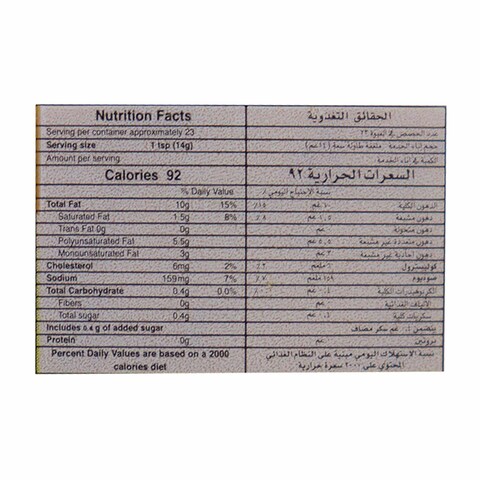 Nutrition Facts
Serving per container approximately 23
Serving size 1 tsp (14g)
Amount per serving
Calories 92
% Daily Value
Total Fat 10g 15%
Saturated Fat 1.5g 8%
Trans Fat 0g 0g
Polyunsaturated Fat 5.5g
Monounsaturated Fat 3g
Cholesterol 6mg 2%
Sodium 159mg 7%
Total Carbohydrate 0.4g 0.0%
Fibers 0g
Total sugar 0.4g
Includes 0.4 g of added sugar
Protein 0g
Percent Daily Values are based on a 2000
calories diet
الحقائق التغذوية
عدد الحصص في العبوة ٢٣
حجم أناء الخدمة ملعقة طاولة سعة (١٤غم)
الكمية في أناء الخدمة
السعرات الحرارية ٩٢
نسبة الإحتياج اليومي ٪
الدهون الكلية ١٠ غم ١٥٪
دهون مشبعة ١،٥ غم ٨٪
دهون متحولة غم
دهون متعددة غير مشبعة ٥،٥ غم
دهون أحادية غير مشبعة ٣ غم
كوليسترول ٦ ملغم ٢٪
صوديوم ١٥٩ ملغم ٧٪
الكربوهيدرات الكلية غم
الألياف الغذائية غم
سكريات كلية ٠،٤ غم
يتضمن ٠،٤ غم سكر مضاف
بروتين غم
نسبة الإستهلاك اليومي مبنية على النظام الغذائي
المحتوي على ٢٠٠٠ سعرة حرارية